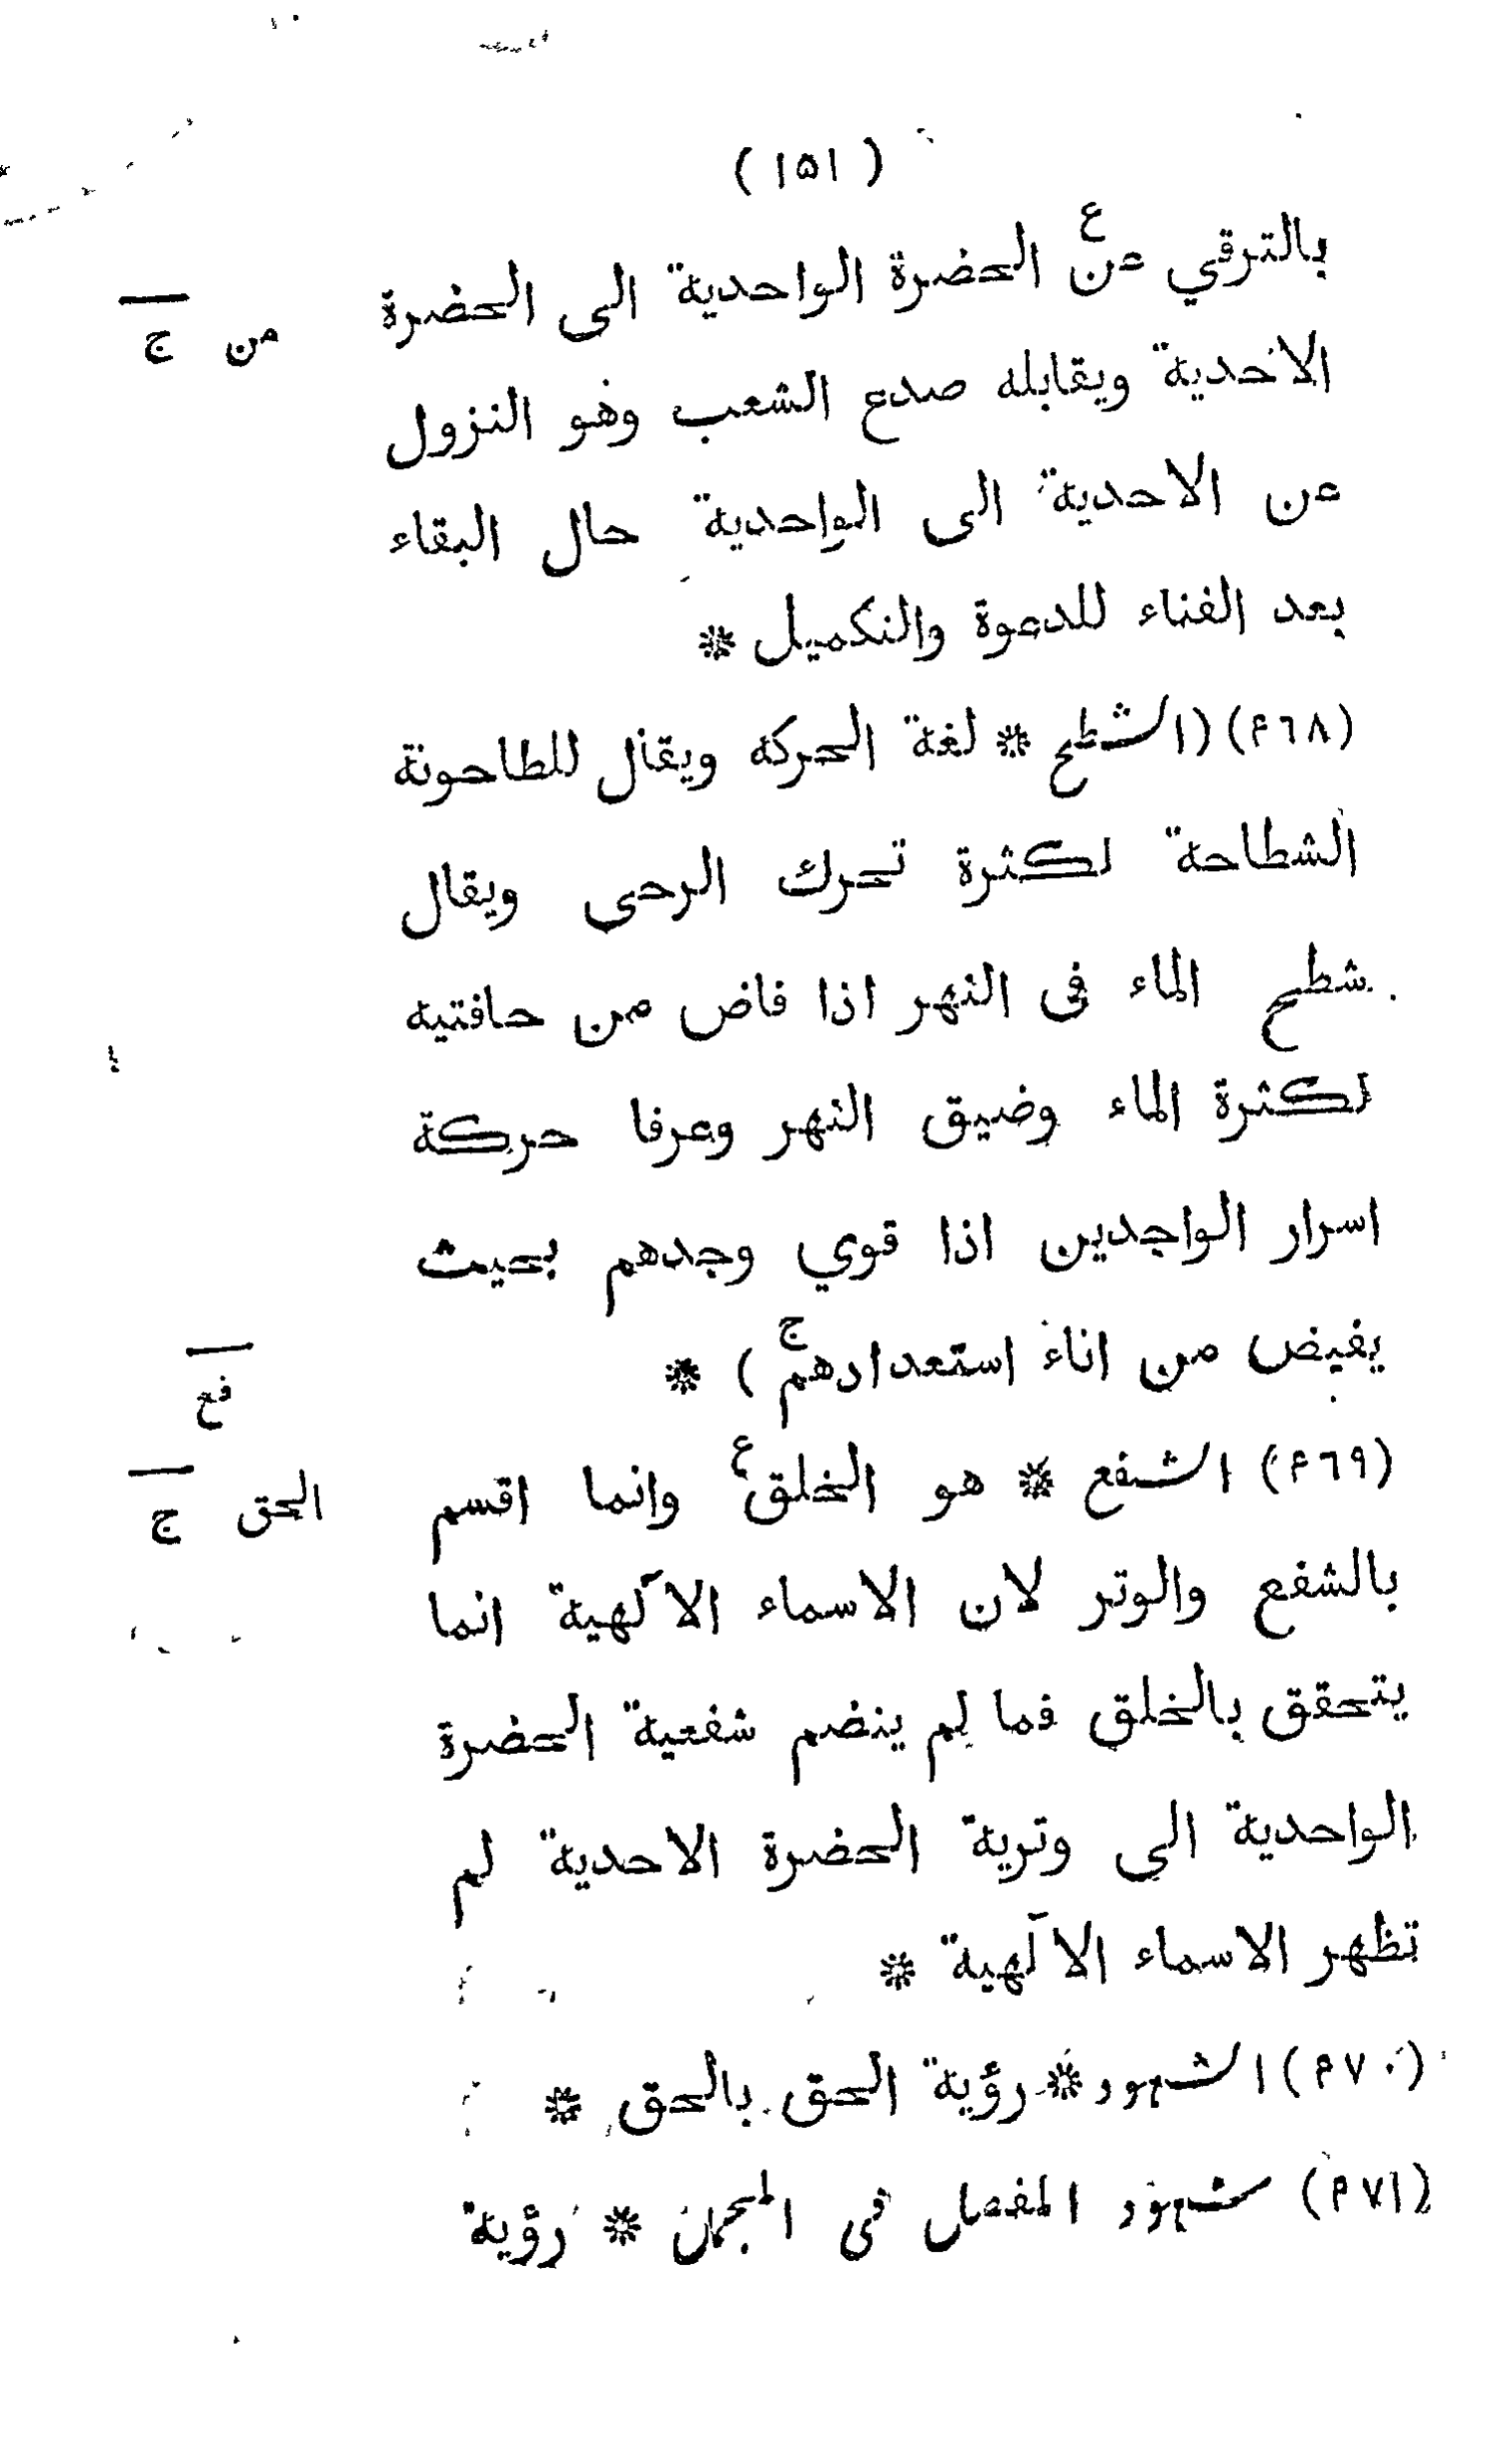 (١٥١)
بالترقي عن ع الحضرة الواحدية الى الحضرة
من ج
الاحدية ويقابله صدع الشعب وهو النزول
عن الاحدية الى الواحدية حال البقاء
بعد الفناء للدعوة والتكميل *
(۴٦٨) (الشطح * لغة الحركه ويقال للطاحونة
الشطاحة لكثرة تحرك الرحى ويقال
شطح الماء في النهر اذا فاض من حافتيه
لكثرة الماء وضيق النهر وعرفا حركة
اسرار الواجدين اذا قوي وجدهم بحيث
يفيض من اناء استعدادهم ج ) *
فع
(۴٦٩) الشفع * هو الخلق ع وانما اقسم
الحق ج
بالشفع والوتر لان الاسماء الآلهية انما
يتحقق بالخلق فما لم ينضم شفعية الحضرة
الواحدية الى وترية الحضرة الاحدية لم
تظهر الاسماء الآلهية *
(۴٧٠) الشهود * رؤية الحق بالحق *
(۴٧١) شهود المفصل فى المجمل * رؤية